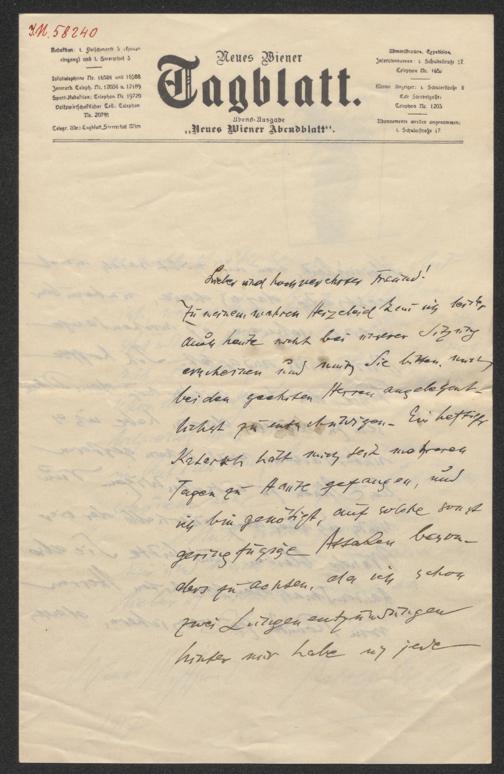 J.N. 58240
Neues Wiener
Tagblatt.
Abend-Ausgabe
„Neues Wiener Abendblatt“.
Redaktion: I. Fleischmarkt 5
eingang) und I. Steyrerhof 3
Lokaltelephone Nr. und
Interurb. Teleph. Nr. und
Sport-Redaktion: Telephon Nr.
Volkswirtschaftlicher Teil: Telephon
Nr.
Telegr. Adr.: Tagblatt, Steyrerhof Wien
Administration, Expedition,
I. Schulerstraße 17
Telephon Nr.
Kleiner Anzeiger: I. Schulerstraße
Ecke
Telephon Nr. 1205
Abonnements werden angenommen:
I. Schulerstraße 17
Lieber und hochverehrter Freund!
Zu meinem wahren Herzeleid kann ich leider
auch heute nicht bei unserer Sitzung
erscheinen und muß Sie bitten, mich
bei den geehrten Herren angelegent-
lichst zu entschuldigen. Ein heftiger
Katarrh hält mich seit mehreren
Tagen zu Hause gefangen, und
ich bin genötigt, auf solche sonst
geringfügige Attacken beson-
ders zu achten, da ich schon
zwei Lungenentzündungen
hinter mir habe u jede